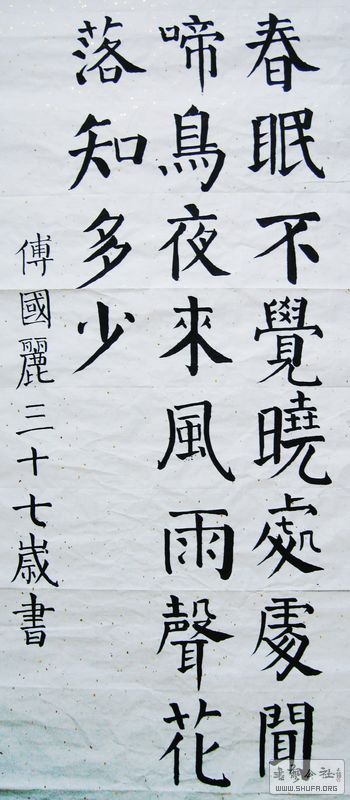 春眠不覺曉處處聞
啼鳥夜來風雨聲花
落知多少
傅國麗三十七歲書
WWW.SHUFA.ORG